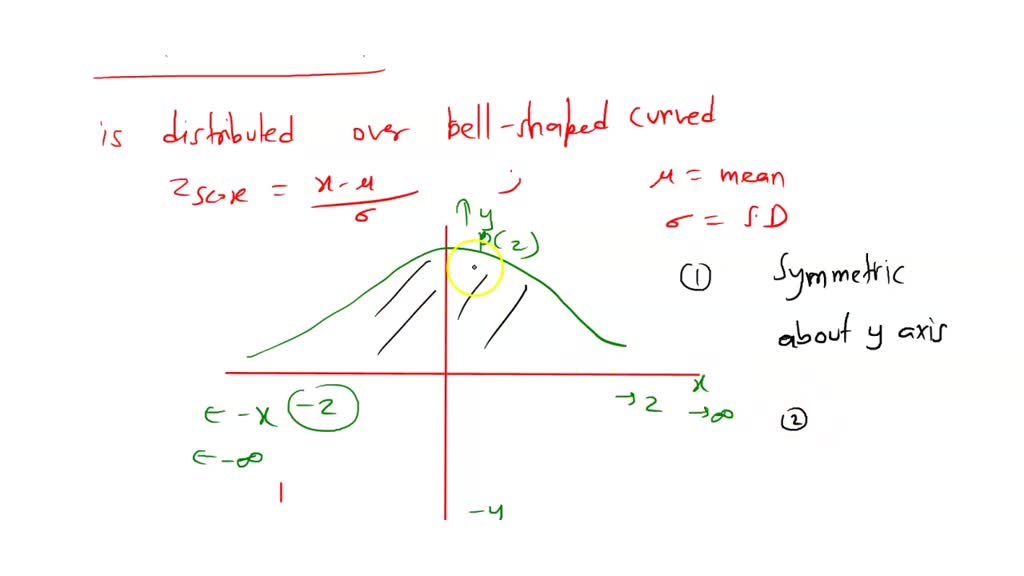 is distributed over bell-shaped curved
Zscore = x - μ / σ ;
μ = mean
σ = S.D
↑ y
P(z)
① Symmetric
about y axis
x
← -x -z
→ z → ∞
②
← -∞
-y